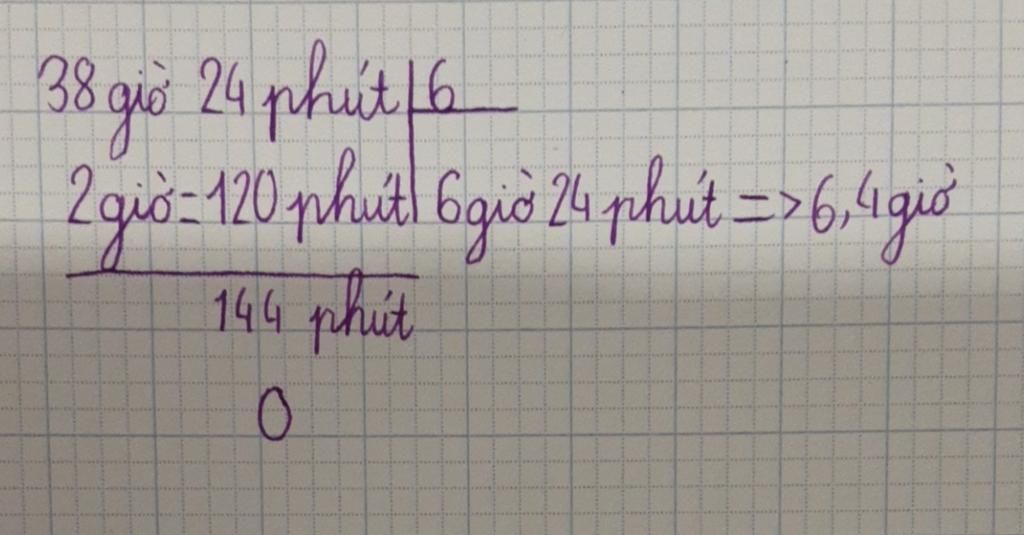 38 giờ 24 phút 6
2 giờ = 120 phút 6 giờ 24 phút => 6,4 giờ
144 phút
0